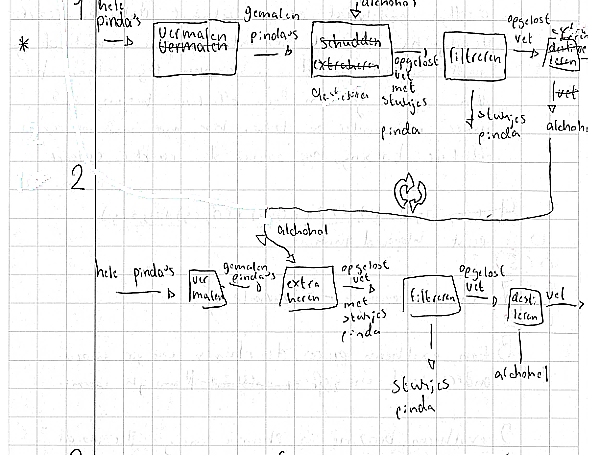 1
alchohol
hele
pinda's
*
vermalen
vermalen
gemalen
pinda's
schudden
extraheren
opgelost
vet
met
stukjes
pinda
filtreren
stukjes
pinda
opgelost
vet
desti
leren
vet
alchohol
2
alchohol
hele pinda's
ver
malen
gemalen
pinda's
extra
heren
opgelost
vet
met
stukjes
pinda
filtreren
stukjes
pinda
opgelost
vet
desti
leren
vet
alchohel